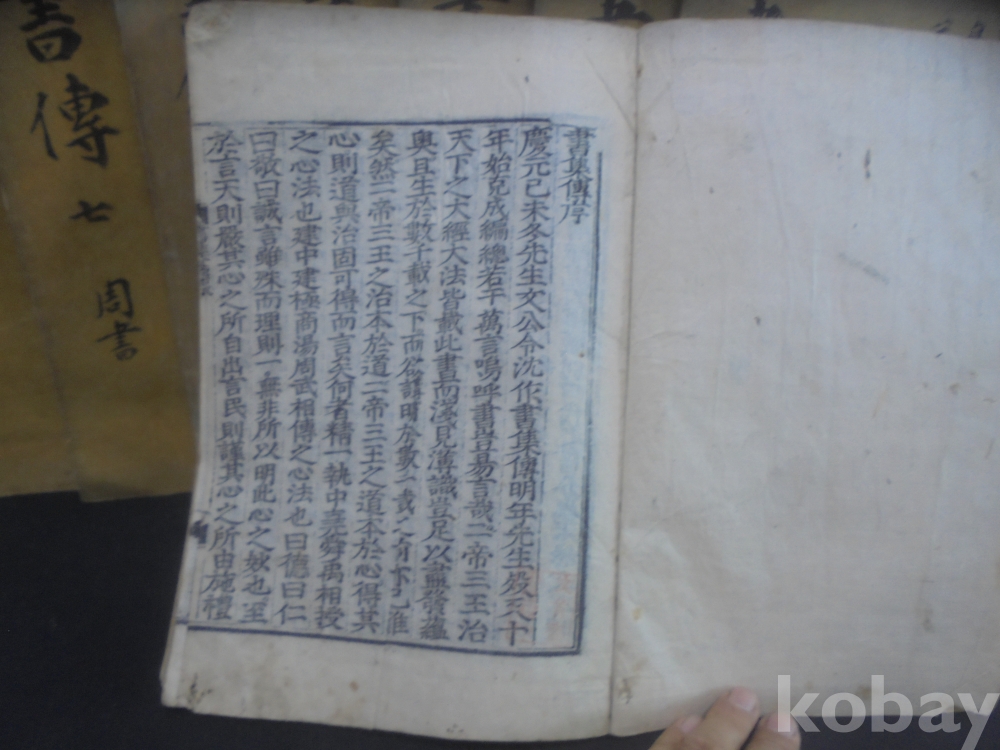 書集傳序
慶元己未冬先生文公令沈作書集傳明年先生歿又十
年始克成編總若干萬言嗚呼書豈易言哉二帝三王治
天下之大經大法皆載此書而淺見薄識豈足以盡發蘊
奧且生於數千載之下而欲講明於數千載之前亦已難
矣然二帝三王之治本於道二帝三王之道本於心得其
心則道與治固可得而言矣何者精一執中堯舜禹相授
之心法也建中建極商湯周武相傳之心法也曰德曰仁
曰敬曰誠言雖殊而理則一無非所以明此心之妙也至
於言天則嚴其心之所自出言民則謹其心之所由施禮
書傳 七
周書
kobay